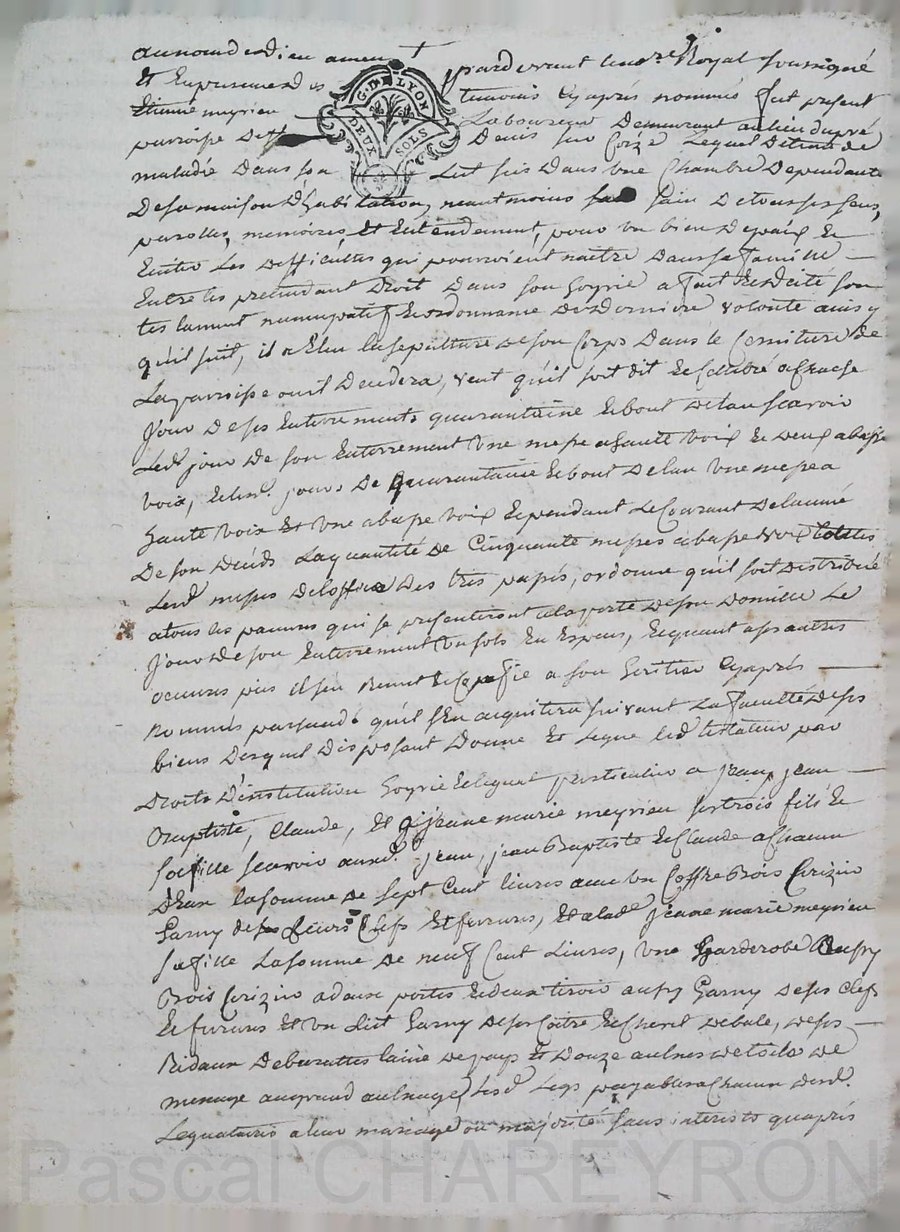 au nom de dieu amen + pardevant le no.re Royal soussigné
Et En presence des temoins cy après nommés fut present
Etienne meyrieu Laboureur Demeurant au lieu du pré
parroisse de st Denis sur Coize Lequel Detenu de
maladie Dans son Lit sis Dans une Chambre Dependante
De sa maison D'habitation, neantmoins sain De tous ses sens,
parolles, memoires Et Entendement, pour un bien De paix Et
Eviter Les Difficultés qui pourroient naitre Dans sa famille —
Entre les pretendant Droit Dans son hoyrie a fait Et Dicté son
testament nuncupatif Et ordonnance De Derniere volonté ainsy
qu'il suit, il a Elu la sepulture De son Corps Dans le Cemitiere De
La parroisse ou il Decedera, veut qu'il soit dit Et Celebré a Chaque
Jour De ses Enterrement quarantaine Et bout De l'an scavoir
Led. jour De son Enterrement Une messe a haute voix Et Deux a basse
voix, Et lesd. jours De Quarantaine Et bout De lan Une messe a
haute voix Et Une a basse voix Et pendant Le Courant De lannée
De son Décéds La quantité De Cinquante messes a basse voix toutes
Lesd. messes De loffice Des tres passés, ordonne qu'il soit Distribué
a tous les pauvres qui se presenteront a la porte De son Domicille Le
Jour De son Enterrement Un sols En Espece, Et quant a ses autres
oeuvres pies il s'en Remet Et Confie a son heritier Cy après —
Nommé persuadé qu'il s'En acquittera suivant La faculté De ses
biens Desquel Disposant Donne Et Legue led. testateur par
Droits D'institution hoyrie Et legat particulier a jean, jean —
Baptiste, Claude, Et jeane marie meyrieu ses trois fils Et
sa fille scavoir auxd. jean, jean Baptiste Et Claude a Chacun
D'Eux la somme De sept Cent livres avec un Coffre Bois Cerizier
Garny De Leurs Clefs Et ferrures, Et a lad. jeane marie meyrieu
sa fille La somme De neuf Cent Livres, Une Garderobe Aussy
Bois Cerizier a deux portes Et deux tiroir aussy Garny De ses Clefs
Et ferrures Et Un Lit Garny De sa Coitre Et Chevet De bale, De ses —
Rideaux De burattes laine De pays Et Douze aulnes De toile De
menage au grand aulnage Lesd. Legs payables a Chacun Desd.
Legataires a leur mariage ou majorité sans interests qu'après
G. D. LYON
DEUX SOLS
Pascal CHAREYRON